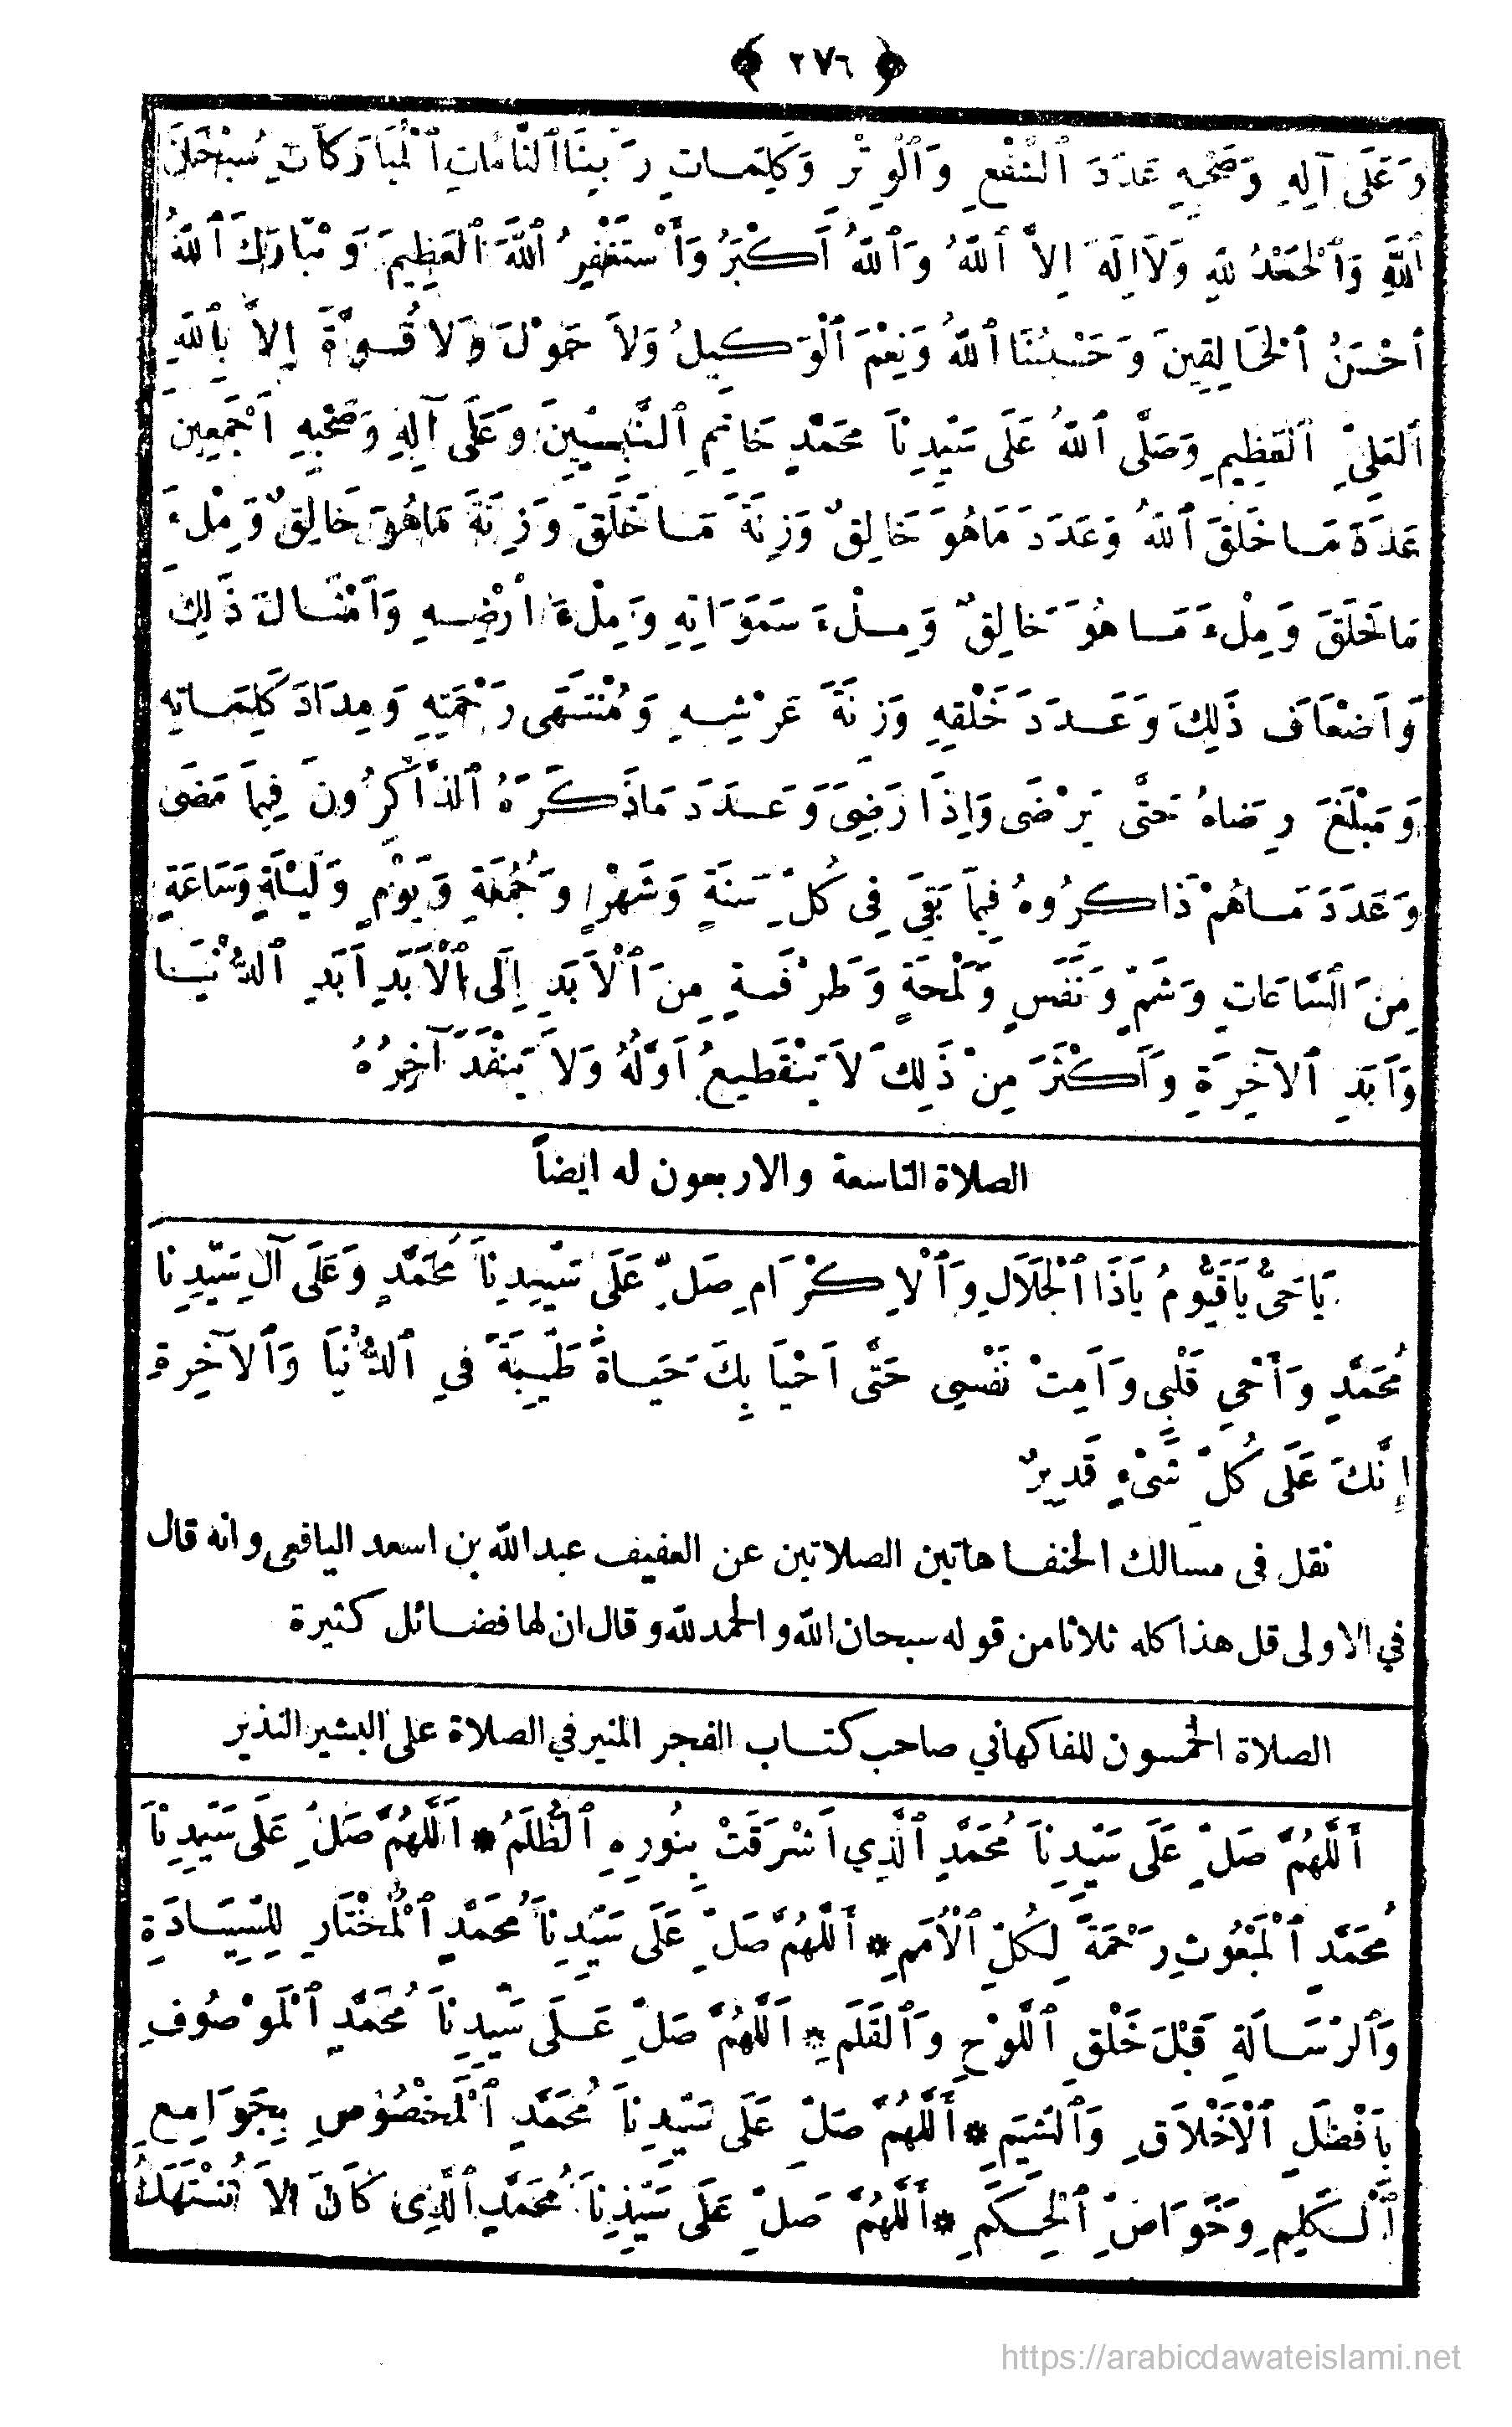 ﴿ ٢٧٦ ﴾
وَعَلَى آلِهِ وَصَحْبِهِ عَدَدَ ٱلشَّفْعِ وَٱلْوِتْرِ وَكَلِمَاتِ رَبِّنَا ٱلتَّامَّاتِ ٱلْمُبَارَكَاتِ سُبْحَانَ
ٱللّٰهِ وَٱلْحَمْدُ لِلّٰهِ وَلَا اِلَهَ اِلاَّ ٱللّٰهُ وَٱللّٰهُ اَكْبَرُ وَأَسْتَغْفِرُ ٱللّٰهَ ٱلْعَظِيمَ وَتَبَارَكَ ٱللّٰهُ
اَحْسَنُ ٱلْخَالِقِينَ وَحَسْبُنَا ٱللّٰهُ وَنِعْمَ ٱلْوَكِيلُ وَلاَ حَوْلَ وَلاَ قُوَّةَ إِلاَّ بِٱللّٰهِ
ٱلْعَلِيِّ ٱلْعَظِيمِ وَصَلَّى ٱللّٰهُ عَلَى سَيِّدِنَا مُحَمَّدٍ خَاتِمِ ٱلنَّبِيِّينَ وَعَلَى آلِهِ وَصَحْبِهِ اَجْمَعِينَ
عَدَدَ مَا خَلَقَ ٱللّٰهُ وَعَدَدَ مَا هُوَ خَالِقٌ وَزِنَةَ مَا خَلَقَ وَزِنَةَ مَا هُوَ خَالِقٌ وَمِلْءَ
مَا خَلَقَ وَمِلْءَ مَا هُوَ خَالِقٌ وَمِلْءَ سَمَوَاتِهِ وَمِلْءَ اَرْضِهِ وَاَمْثَالَ ذَلِكَ
وَاَضْعَافَ ذَلِكَ وَعَدَدَ خَلْقِهِ وَزِنَةَ عَرْشِهِ وَمُنْتَهَى رَحْمَتِهِ وَمِدَادَ كَلِمَاتِهِ
وَمَبْلَغَ رِضَاهُ حَتَّى يَرْضَى وَاِذَا رَضِىَ وَعَدَدَ مَا ذَكَرَهُ ٱلذَّاكِرُونَ فِيمَا مَضَى
وَعَدَدَ مَا هُمْ ذَاكِرُوهُ فِيمَا بَقِيَ فِى كُلِّ سَنَةٍ وَشَهْرٍ وَجُمُعَةٍ وَيَوْمٍ وَلَيْلَةٍ وَسَاعَةٍ
مِنَ ٱلسَّاعَاتِ وَشَمٍّ وَنَفَسٍ وَلَمْحَةٍ وَطَرْفَةٍ مِنَ ٱلْاَبَدِ إِلَى ٱلْاَبَدِ اَبَدِ ٱلدُّنْيَا
وَاَبَدِ ٱلآخِرَةِ وَاَكْثَرَ مِنْ ذَلِكَ لاَ يَنْقَطِعُ اَوَّلُهُ وَلاَ يَنْفَدُ آخِرُهُ
الصلاة التاسعة والاربعون له ايضاً
يَا حَىُّ يَا قَيُّومُ يَا ذَا ٱلْجَلَالِ وَٱلْاِكْرَامِ صَلِّ عَلَى سَيِّدِنَا مُحَمَّدٍ وَعَلَى آلِ سَيِّدِنَا
مُحَمَّدٍ وَأَحْيِ قَلْبِى وَاَمِتْ نَفْسِى حَتَّى اَحْيَا بِكَ حَيَاةً طَيِّبَةً فِي ٱلدُّنْيَا وَٱلآخِرَةِ
إِنَّكَ عَلَى كُلِّ شَىْءٍ قَدِيرٌ
نقل فى مسالك الحنفا هاتين الصلاتين عن العفيف عبدالله بن اسعد اليافعى وانه قال
في الاولى قل هذا كله ثلاثا من قوله سبحان الله والحمد لله وقال ان لها فضائل كثيرة
الصلاة الخمسون للفاكهاني صاحب كتاب الفجر المنير في الصلاة على البشير النذير
أَللّٰهُمَّ صَلِّ عَلَى سَيِّدِنَا مُحَمَّدٍ ٱلَّذِي اَشْرَقَتْ بِنُورِهِ ٱلظُّلَمُ * اَللّٰهُمَّ صَلِّ عَلَى سَيِّدِنَا
مُحَمَّدٍ ٱلْمَبْعُوثِ رَحْمَةً لِكُلِّ ٱلْأُمَمِ * أَللّٰهُمَّ صَلِّ عَلَى سَيِّدِنَا مُحَمَّدٍ ٱلْمُخْتَارِ لِلسِّيَادَةِ
وَٱلرِّسَالَةِ قَبْلَ خَلْقِ ٱللَّوْحِ وَٱلْقَلَمِ * اَللّٰهُمَّ صَلِّ عَلَى سَيِّدِنَا مُحَمَّدٍ ٱلْمَوْصُوفِ
بِاَفْضَلِ ٱلْأَخْلَاقِ وَٱلشِّيَمِ * أَللّٰهُمَّ صَلِّ عَلَى سَيِّدِنَا مُحَمَّدٍ ٱلْمَخْصُوصِ بِجَوَامِعِ
ٱلْكَلِمِ وَخَوَاصِّ ٱلْحِكَمِ * أَللّٰهُمَّ صَلِّ عَلَى سَيِّدِنَا مُحَمَّدٍ ٱلَّذِى كَانَ لاَ تُنْتَهَكُ
https://arabicdawateislami.net